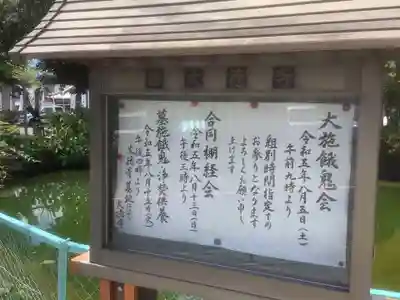 大施餓鬼会
令和五年八月五日(土)
午前九時より
組別時間指定での
お参りとなります
よろしくお願い申し
上げます
合同棚経会
令和五年八月十三日(日)
午後三時より
墓施餓鬼・浄焚供養
令和五年八月十五日(火)
午後四時より